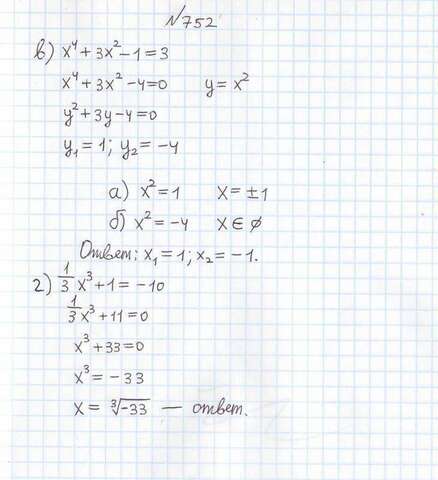 №752
в) x⁴+3x²-1=3
x⁴+3x²-4=0 y=x²
y²+3y-4=0
y₁=1; y₂=-4
а) x²=1 x=±1
б) x²=-4 x∈ø
Ответ: x₁=1; x₂=-1.
г) 1/3 x³+1=-10
1/3 x³+11=0
x³+33=0
x³=-33
x=∛-33 — ответ.